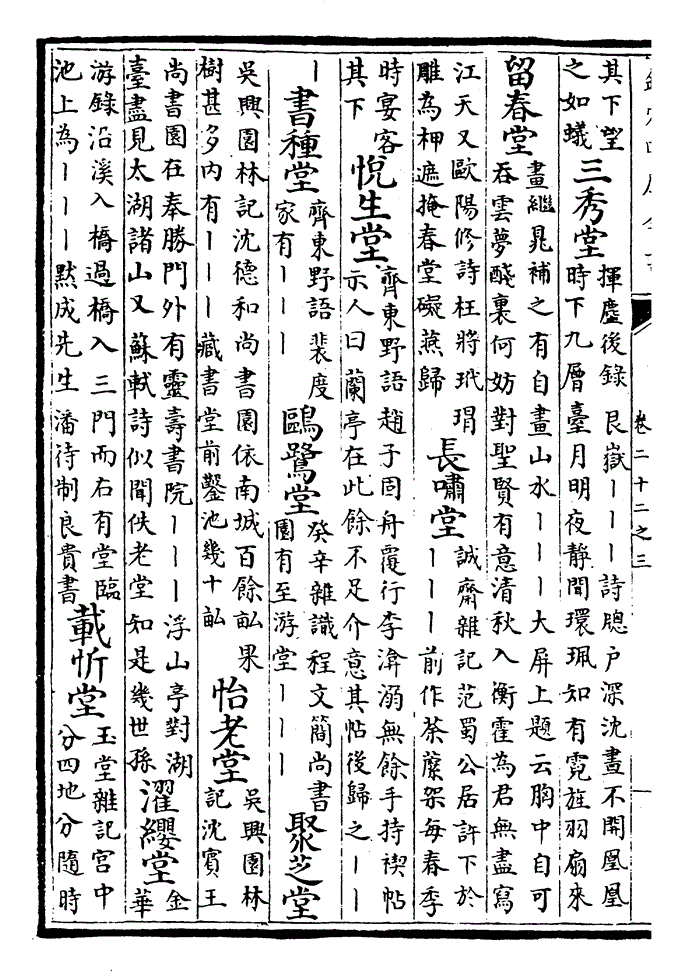 卷二十二之三
其下望
之如蟻
三秀堂
揮麈後錄艮嶽｜｜｜詩牕戶深沈晝不開鳳凰
時下九層臺月明夜靜聞環珮知有霓旌羽扇來
留春堂
畫繼晁補之有自畫山水｜｜｜大屏上題云胸中自可
吞雲夢醆裏何妨對聖賢有意清秋入衡霍為君無盡寫
江天又歐陽修詩枉將玳瑁
雕為柙遮掩春堂礙燕歸
長嘯堂
誠齋雜記范蜀公居許下於
｜｜｜前作荼蘼架每春季
時宴客
其下
悅生堂
齊東野語趙子固舟覆行李渰溺無餘手持禊帖
示人曰蘭亭在此餘不足介意其帖後歸之｜｜
｜
書種堂
齊東野語裴度
家有｜｜｜
鷗鷺堂
癸辛雜識程文簡尚書
園有至游堂｜｜｜
聚芝堂
吳興園林記沈德和尚書園依南城百餘畝果
樹甚多内有｜｜｜藏書堂前鑿池幾十畝
怡老堂
吳興園林
記沈賓王
尚書園在奉勝門外有靈壽書院｜｜｜浮山亭對湖
臺盡見太湖諸山又蘇軾詩似聞佚老堂知是幾世孫
濯纓堂
金
華
游錄沿溪入橋過橋入三門而右有堂臨
池上為｜｜｜默成先生潘待制良貴書
載忻堂
玉堂雜記宮中
分四地分隨時